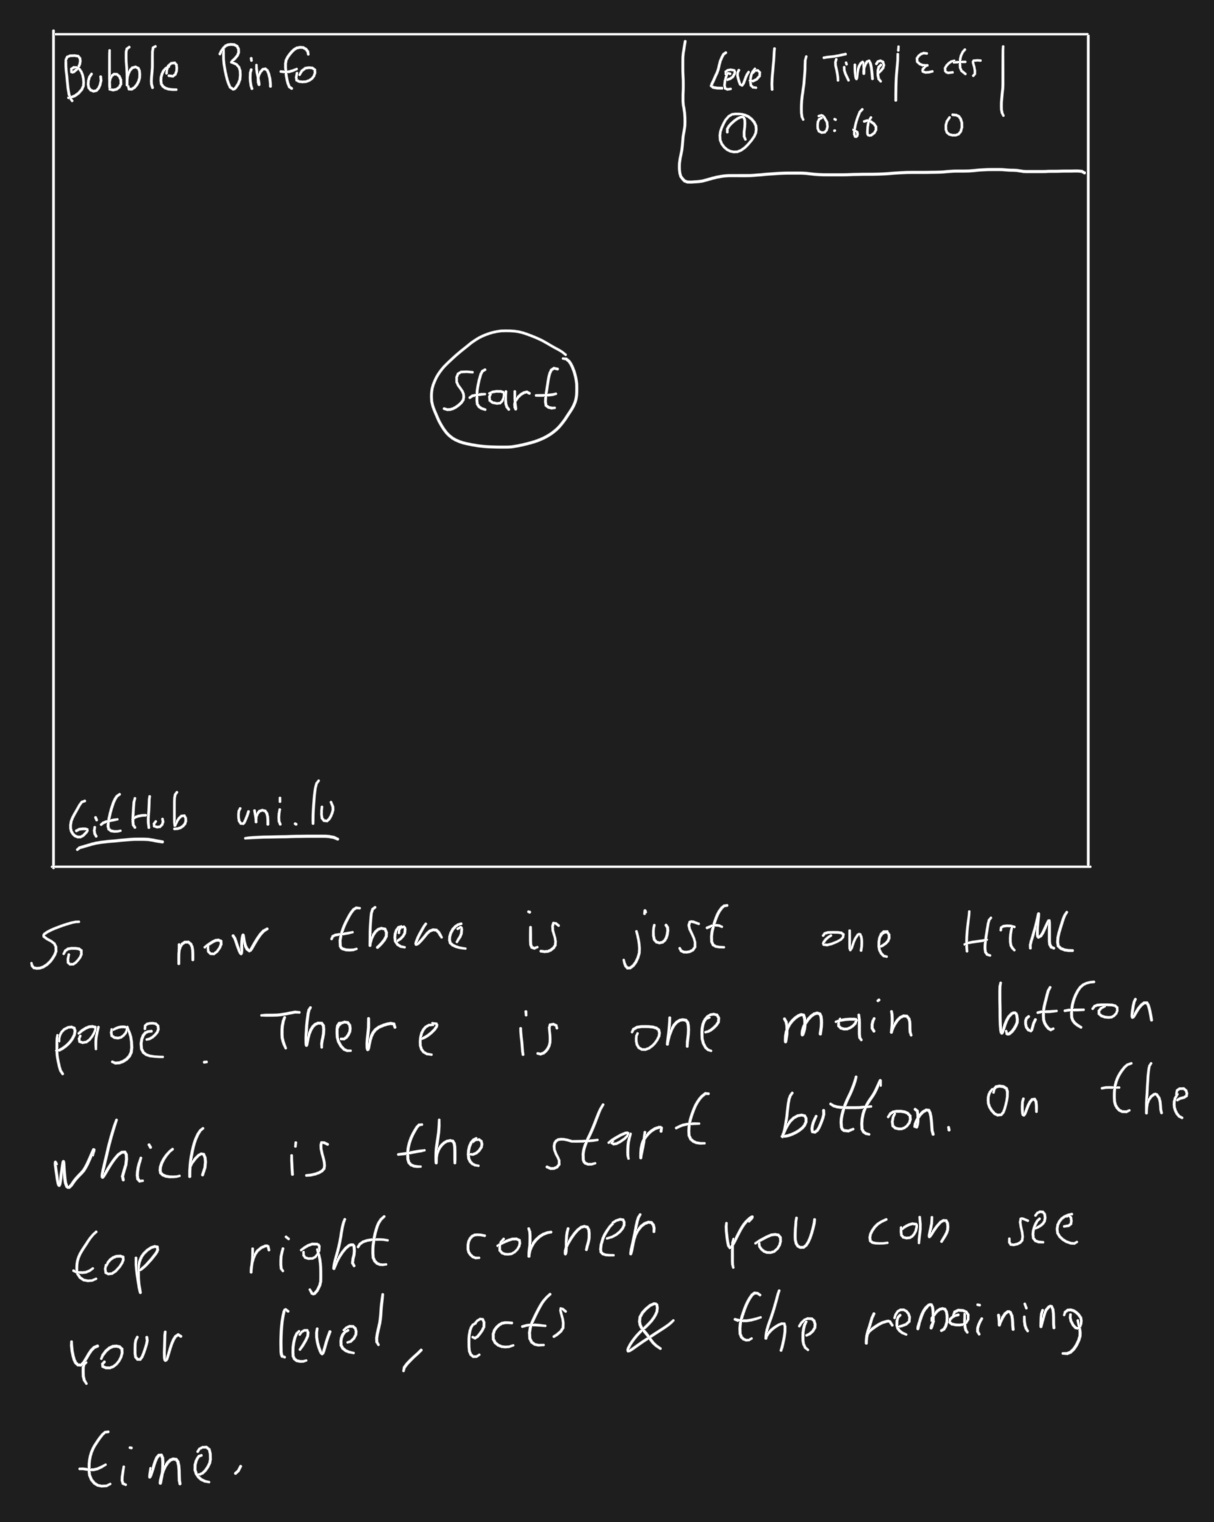 Bubble Binfo
Level | Time | Ects |
1 0:60 0
Start
GitHub uni.lu
So now there is just one HTML
page. There is one main button
which is the start button. On the
top right corner you can see
your level, ects & the remaining
time.